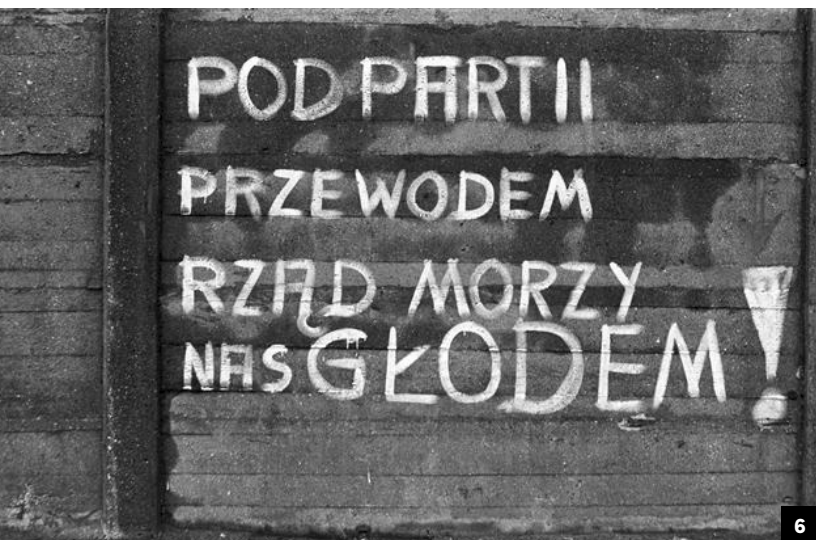 POD PARTII
PRZEWODEM
RZĄD MORZY
NAS GŁODEM!
6